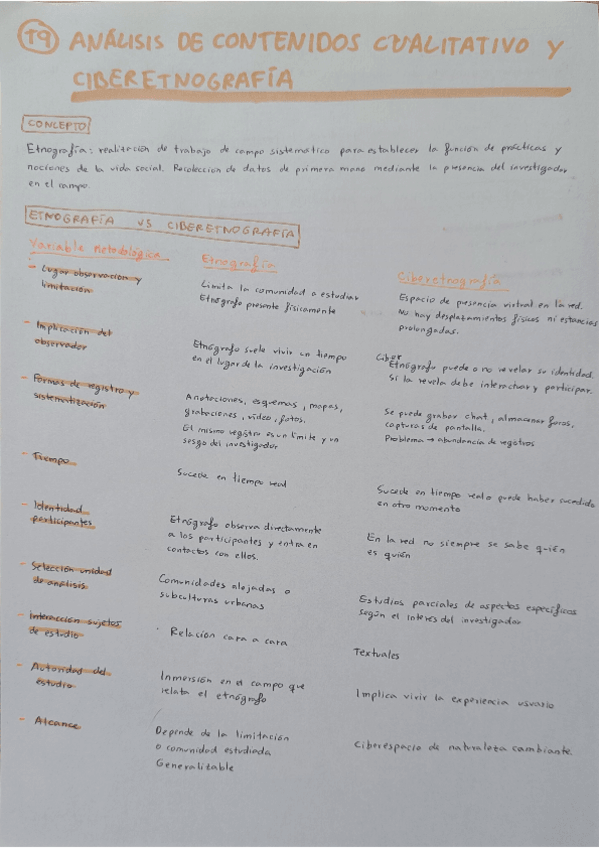 T9 ANÁLISIS DE CONTENIDOS CUALITATIVO Y
CIBERETNOGRAFÍA
CONCEPTO
Etnografía: realización de trabajo de campo sistemático para establecer la función de prácticas y
nociones de la vida social. Recolección de datos de primera mano mediante la presencia del investigador
en el campo.
ETNOGRAFÍA VS CIBERETNOGRAFÍA
Variable metodológica
Etnografía
Ciberetnografía
- Lugar observación y
limitación
Limita la comunidad a estudiar
Etnógrafo presente físicamente
Espacio de presencia virtual en la red.
No hay desplazamientos físicos ni estancias
prolongadas.
- Implicación del
observador
Etnógrafo suele vivir un tiempo
en el lugar de la investigación
Ciber
Etnógrafo puede o no revelar su identidad.
Si la revela debe interactuar y participar.
- Formas de registro y
sistematización
Anotaciones, esquemas, mapas,
grabaciones, vídeo, fotos.
El mismo registro es un límite y un
sesgo del investigador
Se puede grabar chat, almacenar foros,
capturas de pantalla.
Problema → abundancia de registros
- Tiempo
Sucede en tiempo real
Sucede en tiempo real o puede haber sucedido
en otro momento
- Identidad
participantes
Etnógrafo observa directamente
a los participantes y entra en
contactos con ellos.
En la red no siempre se sabe quién
es quién
- Selección unidad
de análisis
Comunidades alejadas o
subculturas urbanas
Estudios parciales de aspectos específicos
según el interés del investigador
- Interacción sujetos
de estudio
Relación cara a cara
Textuales
- Autoridad del
estudio
Inmersión en el campo que
relata el etnógrafo
Implica vivir la experiencia usuario
- Alcance
Depende de la limitación
o comunidad estudiada
Generalizable
Ciberespacio de naturaleza cambiante.